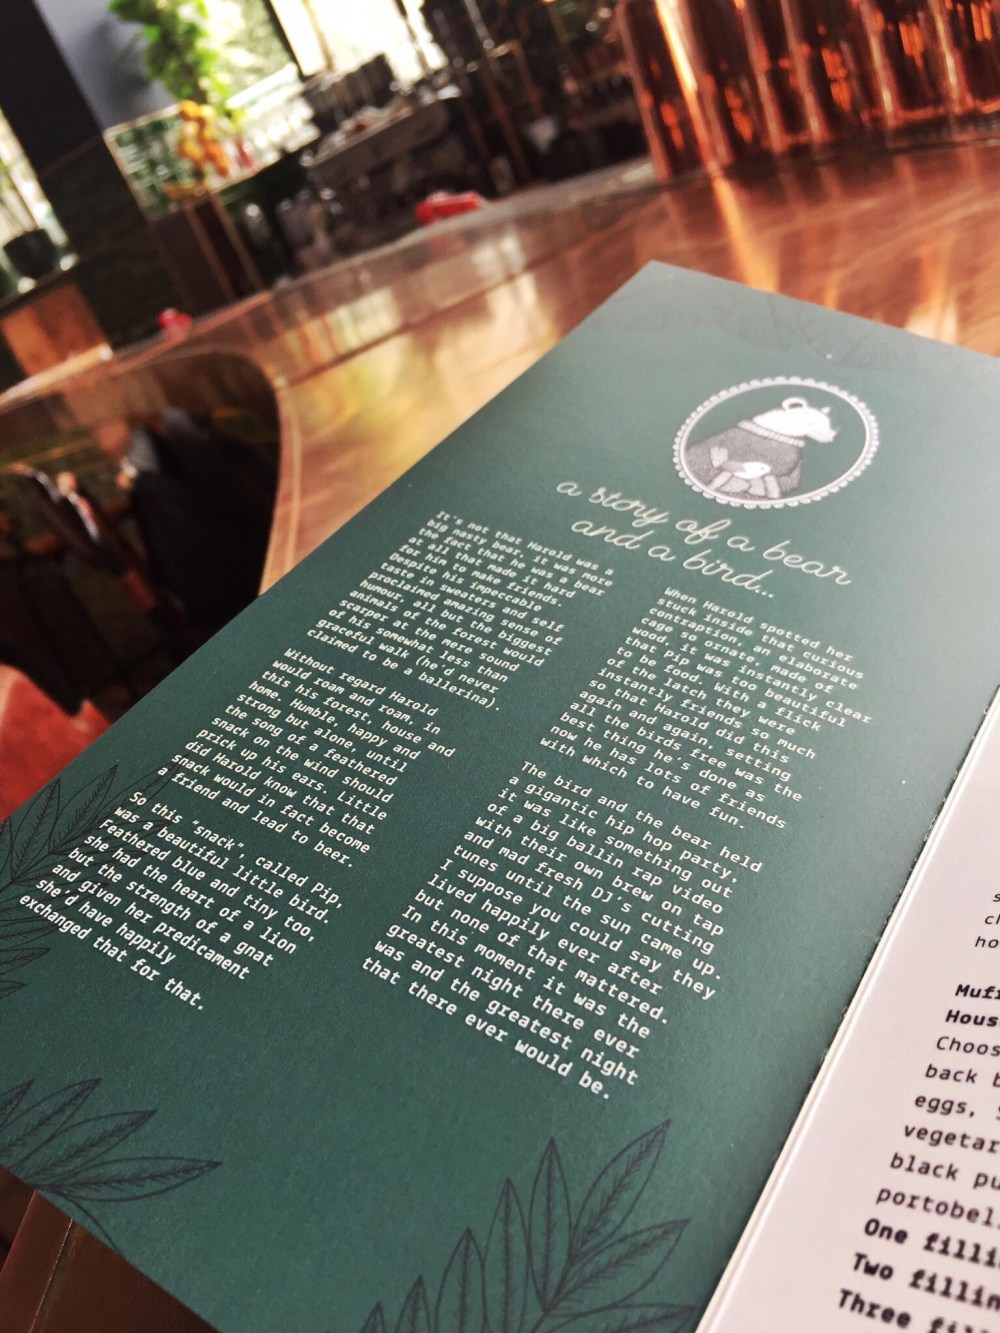 a story of a bear
and a bird...
It's not that Harold was a
big nasty bear, it was more
the fact that he was a bear
at all that made it hard
for him to make friends.
Despite his impeccable
taste in sweaters and self
proclaimed amazing sense of
humour, all but the biggest
animals of the forest would
scarper at the mere sound
of his somewhat less than
graceful walk (he'd never
claimed to be a ballerina).
Without regard Harold
would roam and roam, in
this his forest, house and
home. Humble, happy and
strong but alone, until
the song of a feathered
snack on the wind should
prick up his ears. Little
did Harold know that that
snack would in fact become
a friend and lead to beer.
So this "snack", called Pip,
was a beautiful little bird.
Feathered blue and tiny too,
she had the heart of a lion
but the strength of a gnat
and given her predicament
she'd have happily
exchanged that for that.
When Harold spotted her
stuck inside that curious
contraption, an elaborate
cage so ornate, made of
wood, it was instantly clear
that Pip was too beautiful
to be food. With a flick
of the latch they were
instantly friends so much
so that Harold did this
again and again, setting
all the birds free was the
best thing he's done as
now he has lots of friends
with which to have fun.
The bird and the bear held
a gigantic hip hop party,
it was like something out
of a big ballin rap video
with their own brew on tap
and mad fresh DJ's cutting
tunes until the sun came up.
I suppose you could say they
lived happily ever after
but none of that mattered.
In this moment it was the
greatest night there ever
was and the greatest night
that there ever would be.
Choos
back b
eggs,
vegetar
black pu
portobel
One filli
Two fillin
Three fil